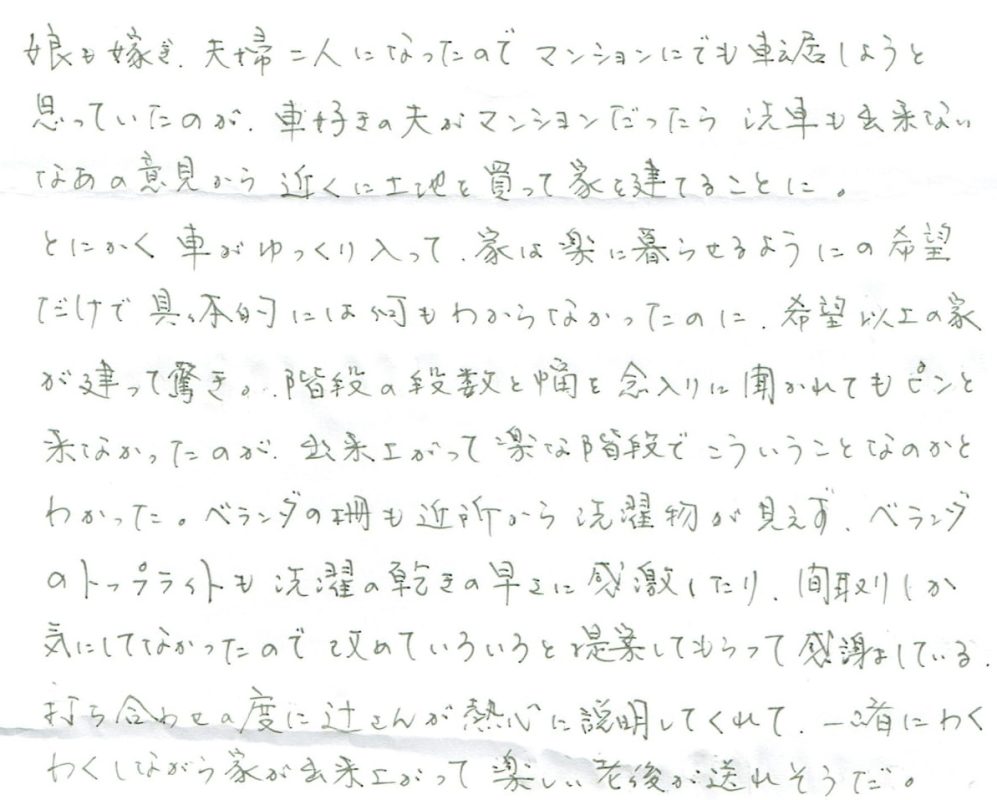 娘も嫁ぎ、夫婦二人になったので マンションにでも転居しようと
思っていたのが、車好きの夫がマンションだったら 洗車も出来ない
なあの意見から 近くに土地を買って家を建てることに。
とにかく 車がゆっくり入って、家は楽に暮らせるようにの希望
だけで 具体的には何もわからなかったのに、希望以上の家
が建って驚き。階段の段数と幅を念入りに聞かれてもピンと
来なかったのが、出来上がって楽な階段でこういうことなのかと
わかった。ベランダの柵も近所から洗濯物が見えず、ベランダ
のトップライトも洗濯の乾きの早さに感激したり、間取りしか
気にしてなかったので改めていろいろと提案してもらって感謝している。
打ち合わせの度に辻さんが熱心に説明してくれて、一緒にわく
わくしながら家が出来上がって 楽しい老後が送れそうだ。